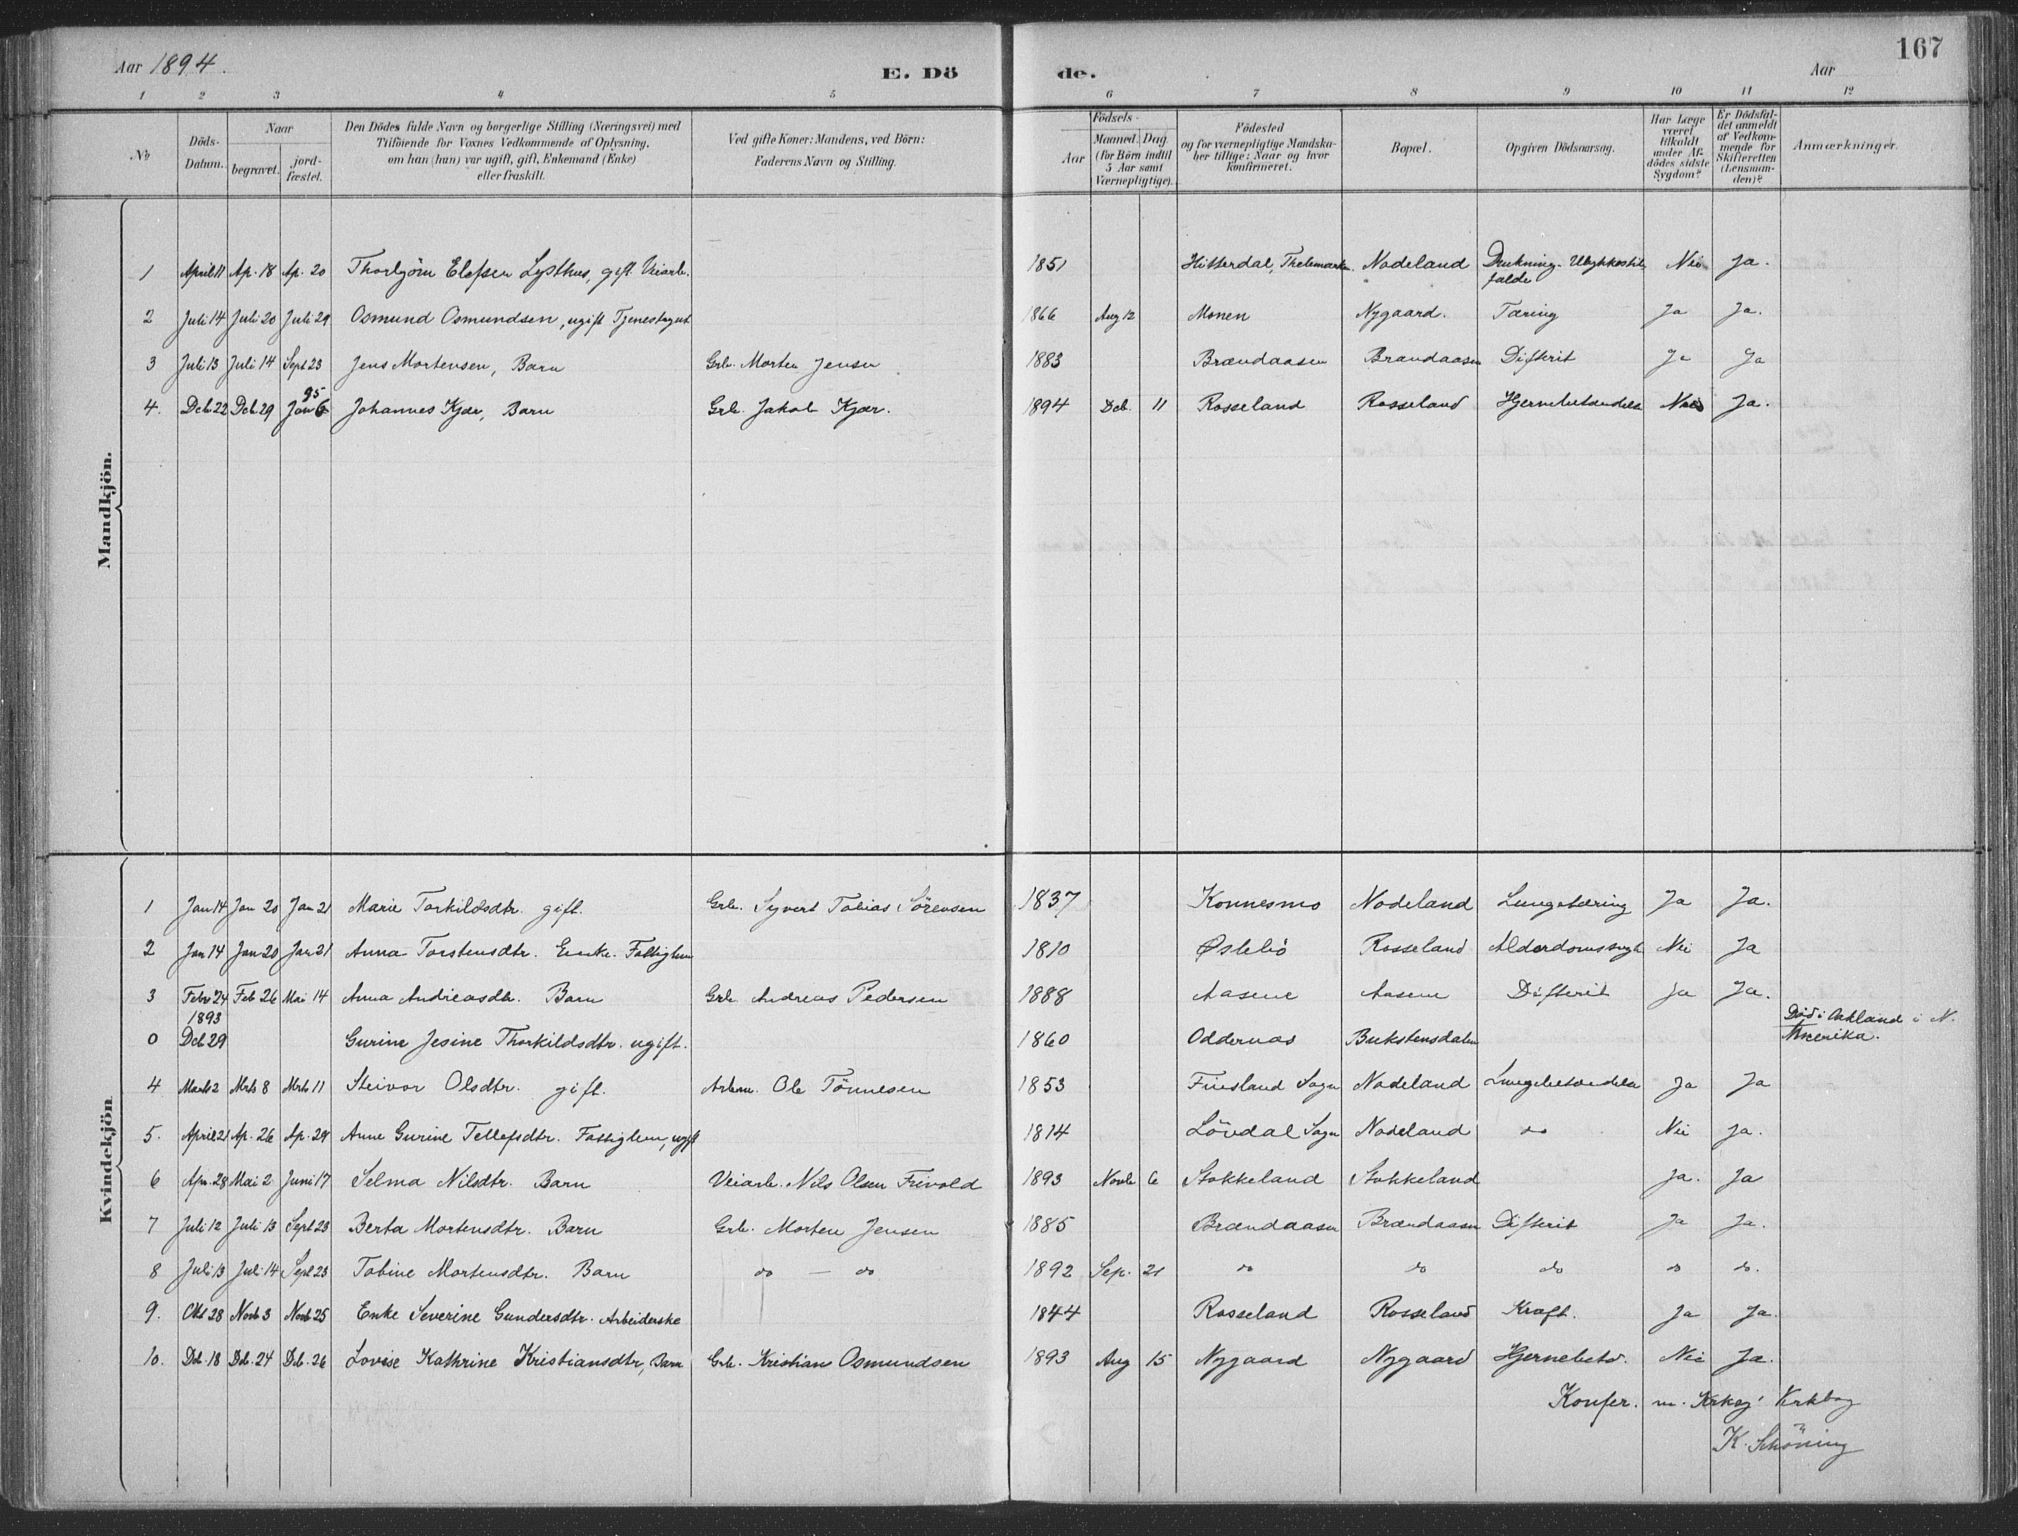 Aar 1894. E. Dö de. Aar 167
1 2 3 4 5 6 7 8 9 10 11 12
No Döds-Datum. Naar begravet. jord-fæstet. Den Dödes fulde Navn og borgerlige Stilling (Næringsvei) med Tilföiende for Voxnes Vedkommende af Oplysning, om han (hun) var ugift, gift, Enkemand (Enke) eller fraskilt. Ved gifte Koner: Mandens, ved Börn: Faderens Navn og Stilling. Födsels- Aar Maaned. Dag. (for Börn indtil 5 Aar samt Værnepligtige). Födested og for værnepligtige Mandskaber tillige: Naar og hvor konfirmeret. Bopæl. Opgiven Dödsaarsag. Har Læge været tilkaldt under Afdödes sidste Sygdom? Er Dödsfaldet anmeldt af Vedkommende for Skifteretten (Lensmanden)? Anmærkninger.
Mandkjön.
1 April 11 Ap. 18 Ap. 20 Thorbjörn Elefsen Lysthus, gift Veiarb. 1851 Hitterdal, Thelemarken Nodeland Drukning. Ulykkestilfælde Nei Ja.
2 Juli 14 Juli 20 Juli 29 Osmund Osmundsen, ugift Tjenestegut 1866 Aug 12 Monen Nygaard. Tæring Ja Ja.
3 Juli 13 Juli 14 Sept 23 Jens Mortensen, Barn Grb. Morten Jensen 1883 Brændaasen Brændaasen Difterit Ja Ja
4. Deb. 22 Deb. 29 Jan 6 95 Johannes Kjær, Barn Grb. Jakob Kjær. 1894 Deb. 11 Rosseland Rosseland Hjernebetændelse Nei Ja.
Kvindekjön
1 Jan 14 Jan 20 Jan 21 Marie Torkildsdtr. gift. Grb. Syvert Tobias Sörensen 1837 Konnesmo Nodeland Lungetæring Ja Ja.
2 Jan 14 Jan 20 Jan 21 Anna Torstensdtr. Enke. Fattiglem 1810 Østebö Rosseland Alderdomssvagh. Nei Ja
3 Febr 24 Feb 26 Mai 14 Anna Andreasdtr. Barn Grb. Andreas Pedersen 1888 Aasene Aasene Difterit Ja Ja.
0 1893 Deb 29 Gurine Jesine Thorkildsdtr. ugift. 1860 Oddernæs Bukstensdalen Död i Oakland i N. Amerika.
4 Marts 2 Mrts 8 Mrts 11 Steivor Olsdtr. gift. Arbm. Ole Tönnesen 1853 Finsland Sogn Nodeland Lungebetændelse Ja Ja
5. April 21 Ap. 26 Ap. 29 Anne Gurine Tellefsdtr. Fattiglem, ugift 1814 Lövdal Sogn Nodeland do Nei Ja.
6 Apr. 28 Mai 2 Juni 17 Selma Nilsdtr. Barn Veiarb. Nils Olsen Frivold 1893 Novb 6 Stokkeland Stokkeland Ja. Ja
7 Juli 12 Juli 13 Sept 23 Berta Mortensdtr. Barn Grb. Morten Jensen 1885 Brændaasen Brændaasen Difterit Ja Ja.
8 Juli 13 Juli 14 Sept 23 Tobine Mortensdtr. Barn do — do 1892 Sep. 21 do do do do do.
9. Okt 28 Novb 3 Novb 25 Enke Severine Gundersdtr. Arbeiderske 1844 Rosseland Rosseland Kræft. Ja Ja.
10. Deb. 18 Deb. 24 Deb. 26 Lovise Kathrine Kristiansdtr, Barn Grb. Kristian Osmundsen 1893 Aug 15 Nygaard Nygaard Hjernebetd. Nei Ja.
Konfer. m. Kirkbog
K. Schöning